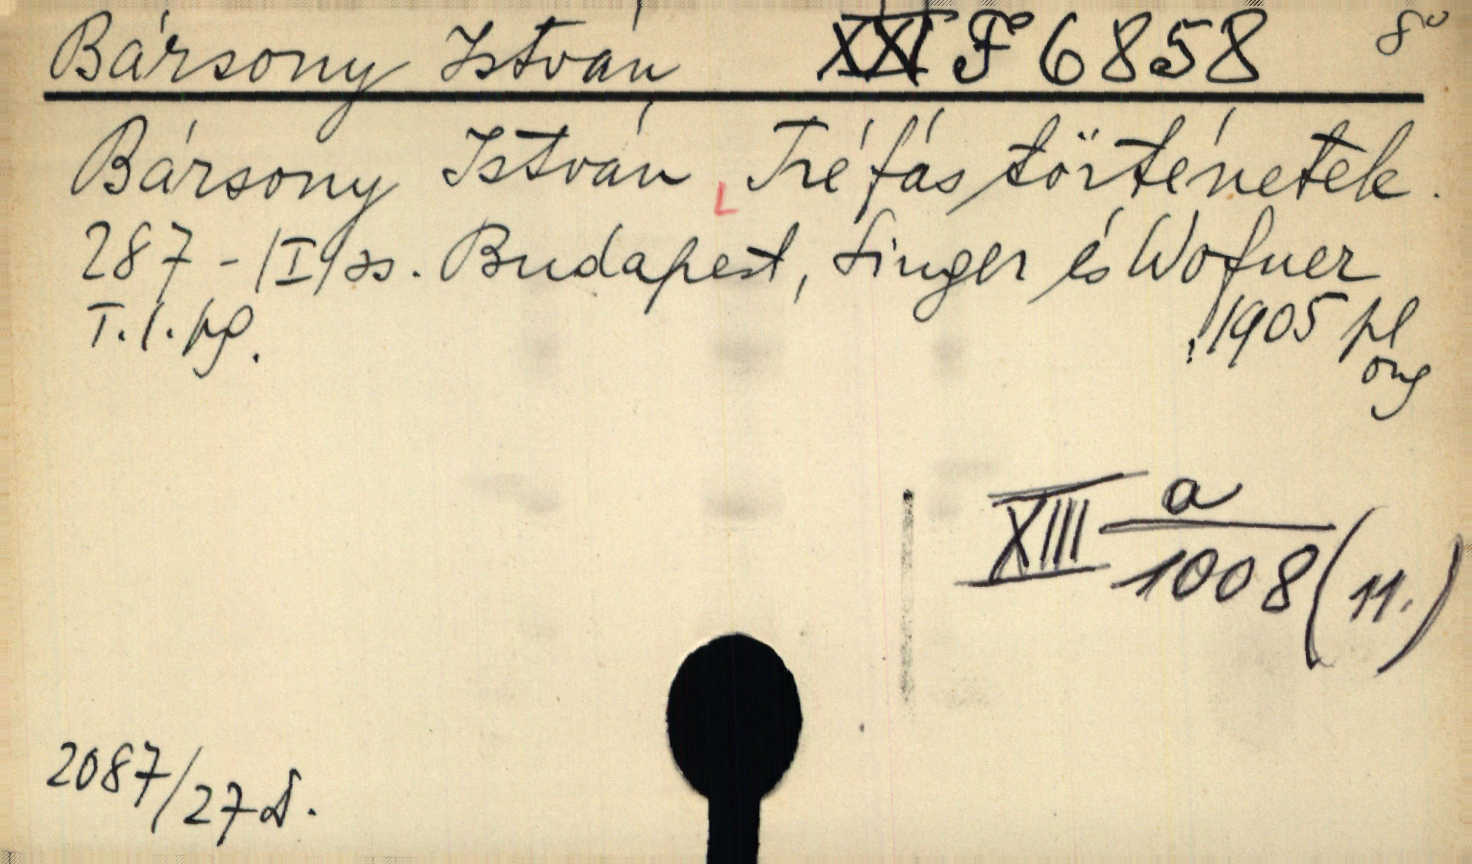 Bársony István XXI F 6858 8°
Bársony István L Tréfás történetek.
287-|I| ss. Budapest, Singer és Wofner
T.l.
, 1905
XIII a/1008 (11.)
2087/27